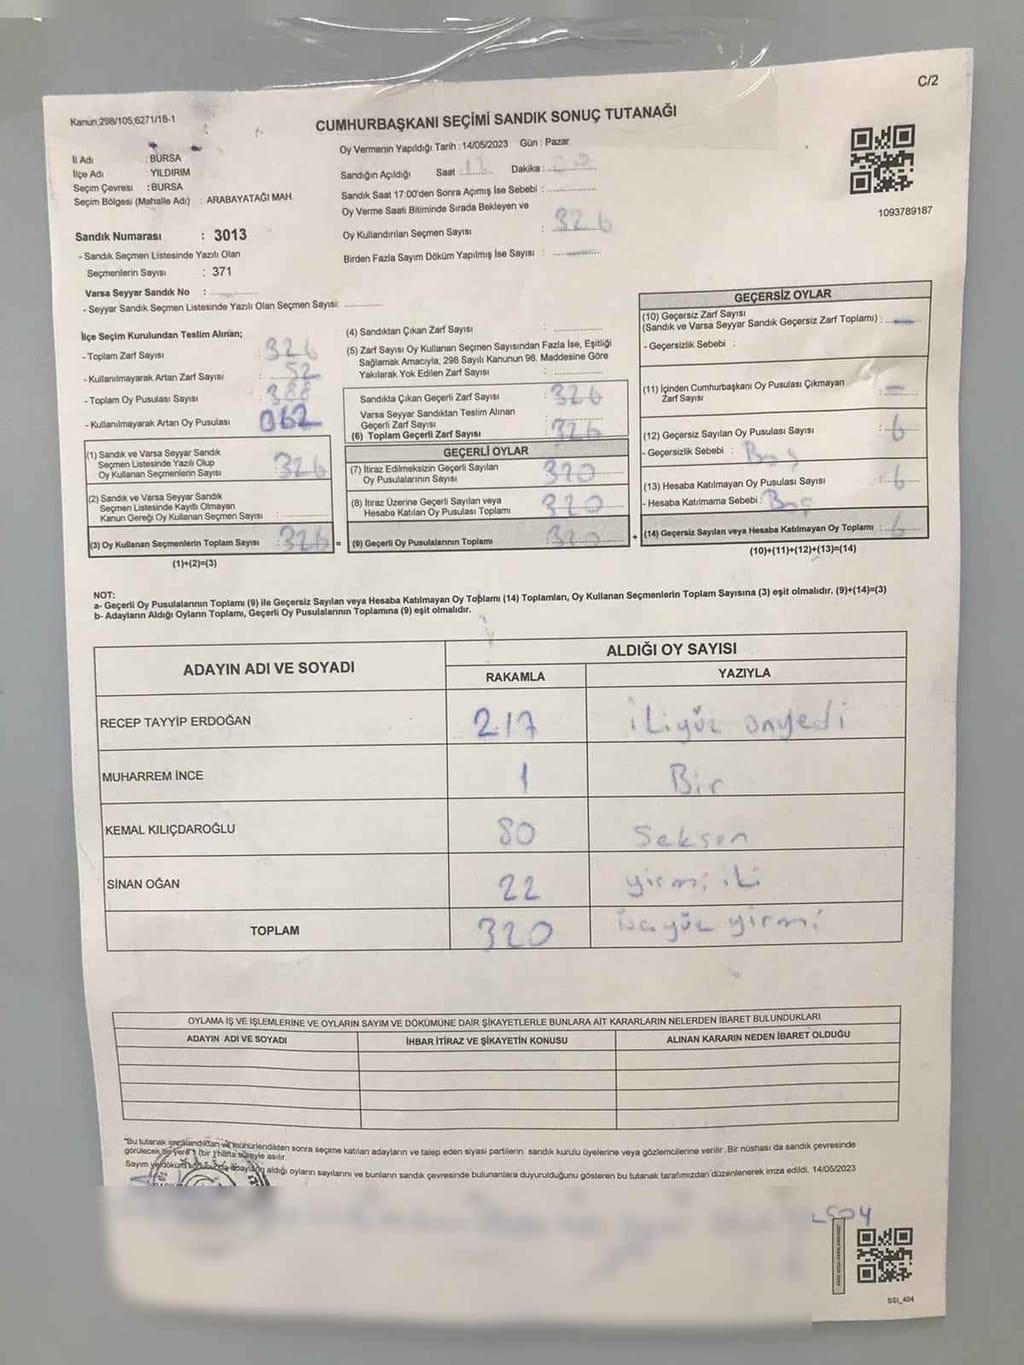 C/2
Kanun;298/105,6271/16-1
CUMHURBAŞKANI SEÇİMİ SANDIK SONUÇ TUTANAĞI
İl Adı : BURSA
İlçe Adı : YILDIRIM
Seçim Çevresi : BURSA
Seçim Bölgesi (Mahalle Adı) : ARABAYATAĞI MAH.
Sandık Numarası : 3013
- Sandık Seçmen Listesinde Yazılı Olan
Seçmenlerin Sayısı : 371
Varsa Seyyar Sandık No :
- Seyyar Sandık Seçmen Listesinde Yazılı Olan Seçmen Sayısı:
Oy Vermenin Yapıldığı Tarih : 14/05/2023 Gün : Pazar
Sandığın Açıldığı Saat : Dakika :
Sandık Saat 17:00'den Sonra Açımış İse Sebebi :
Oy Verme Saati Bitiminde Sırada Bekleyen ve
Oy Kullandırılan Seçmen Sayısı : 326
Birden Fazla Sayım Döküm Yapılmış İse Sayısı :
1093789187
İlçe Seçim Kurulundan Teslim Alınan;
- Toplam Zarf Sayısı : 326
- Kullanılmayarak Artan Zarf Sayısı : 52
- Toplam Oy Pusulası Sayısı : 388
- Kullanılmayarak Artan Oy Pusulası 062
(1) Sandık ve Varsa Seyyar Sandık
Seçmen Listesinde Yazılı Olup
Oy Kullanan Seçmenlerin Sayısı : 326
(2) Sandık ve Varsa Seyyar Sandık
Seçmen Listesinde Kayıtlı Olmayan
Kanun Gereği Oy Kullanan Seçmen Sayısı :
(3) Oy Kullanan Seçmenlerin Toplam Sayısı : 326 =
(1)+(2)=(3)
(4) Sandıktan Çıkan Zarf Sayısı :
(5) Zarf Sayısı Oy Kullanan Seçmen Sayısından Fazla İse, Eşitliği
Sağlamak Amacıyla, 298 Sayılı Kanunun 98. Maddesine Göre
Yakılarak Yok Edilen Zarf Sayısı :
Sandıkta Çıkan Geçerli Zarf Sayısı : 326
Varsa Seyyar Sandıktan Teslim Alınan
Geçerli Zarf Sayısı :
(6) Toplam Geçerli Zarf Sayısı : 326
GEÇERLİ OYLAR
(7) İtiraz Edilmeksizin Geçerli Sayılan
Oy Pusulalarının Sayısı : 320
(8) İtiraz Üzerine Geçerli Sayılan veya
Hesaba Katılan Oy Pusulası Toplamı : 320
(9) Geçerli Oy Pusulalarının Toplamı : 320 +
GEÇERSİZ OYLAR
(10) Geçersiz Zarf Sayısı
(Sandık ve Varsa Seyyar Sandık Geçersiz Zarf Toplamı) :
- Geçersizlik Sebebi :
(11) İçinden Cumhurbaşkanı Oy Pusulası Çıkmayan
Zarf Sayısı : —
(12) Geçersiz Sayılan Oy Pusulası Sayısı : 6
- Geçersizlik Sebebi : Boş
(13) Hesaba Katılmayan Oy Pusulası Sayısı : 6
- Hesaba Katılmama Sebebi : Boş
(14) Geçersiz Sayılan veya Hesaba Katılmayan Oy Toplamı : 6
(10)+(11)+(12)+(13)=(14)
NOT:
a- Geçerli Oy Pusulalarının Toplamı (9) ile Geçersiz Sayılan veya Hesaba Katılmayan Oy Toplamı (14) Toplamları, Oy Kullanan Seçmenlerin Toplam Sayısına (3) eşit olmalıdır. (9)+(14)=(3)
b- Adayların Aldığı Oyların Toplamı, Geçerli Oy Pusulalarının Toplamına (9) eşit olmalıdır.
ADAYIN ADI VE SOYADI ALDIĞI OY SAYISI
RAKAMLA YAZIYLA
RECEP TAYYİP ERDOĞAN 217 ikiyüz onyedi
MUHARREM İNCE 1 Bir
KEMAL KILIÇDAROĞLU 80 Seksen
SİNAN OĞAN 22 yirmi iki
TOPLAM 320 üçyüz yirmi
OYLAMA İŞ VE İŞLEMLERİNE VE OYLARIN SAYIM VE DÖKÜMÜNE DAİR ŞİKAYETLERLE BUNLARA AİT KARARLARIN NELERDEN İBARET BULUNDUKLARI
ADAYIN ADI VE SOYADI İHBAR İTİRAZ VE ŞİKAYETİN KONUSU ALINAN KARARIN NEDEN İBARET OLDUĞU
"Bu tutanak imzalandıktan ve mühürlendikten sonra seçime katılan adayların ve talep eden siyasi partilerin sandık kurulu üyelerine veya gözlemcilerine verilir. Bir nüshası da sandık çevresinde
görülecek bir yere 1 (bir) hafta süreyle asılır.
Sayım ve döküm adayların aldığı oyların sayılarını ve bunların sandık çevresinde bulunanlara duyurulduğunu gösteren bu tutanak tarafımızdan düzenlenerek imza edildi. 14/05/2023
SSI_404